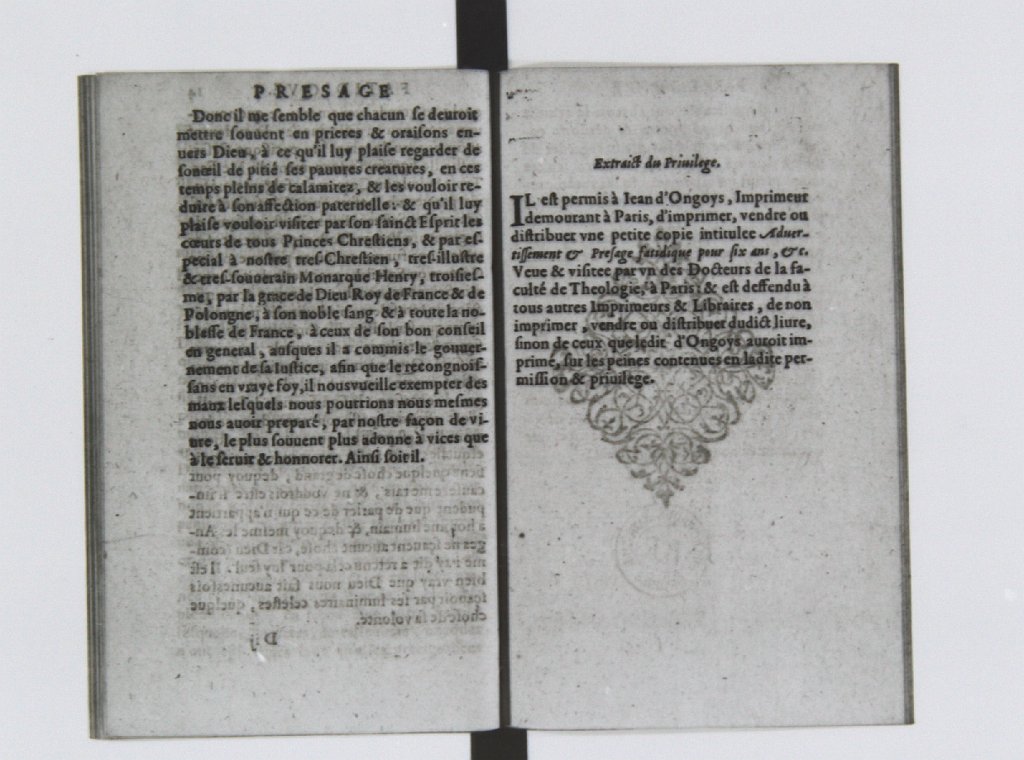 PRESAGE
Donc il me semble que chacun se deuroit
mettre souuent en prieres & oraisons en-
uers Dieu, à ce qu'il luy plaise regarder de
son œil de pitié ses pauures creatures, en ces
temps pleins de calamitez, & les vouloir re-
duire à son affection paternelle: & qu'il luy
plaise vouloir visiter par son sainct Esprit les
cœurs de tous Princes Chrestiens, & par es-
pecial à nostre tres-Chrestien, tres-illustre
& tres-souuerain Monarque Henry, troisies-
me, par la grace de Dieu Roy de France & de
Polongne, à son noble sang & à toute la no-
blesse de France, à ceux de son bon conseil
en general, ausques il a commis le gouuer-
nement de sa Iustice, afin que le recongnois-
sans en vraye foy, il nous vueille exempter des
maux lesquels nous pourrions nous mesmes
nous auoir preparé, par nostre façon de vi-
ure, le plus souuent plus adonne à vices que
à le seruir & honnorer. Ainsi soit il.
Extraict du Priuilege.
IL est permis à Iean d'Ongoys, Imprimeur
demourant à Paris, d'imprimer, vendre ou
distribuer vne petite copie intitulee Aduer-
tissement & Presage fatidique pour six ans, &c.
Veue & visitee par vn des Docteurs de la fa-
culté de Theologie, à Paris: & est deffendu à
tous autres Imprimeurs & Libraires, de non
imprimer, vendre ou distribuer dudict liure,
sinon de ceux que ledit d'Ongoys auroit im-
primé, sur les peines contenues en ladite per-
mission & priuilege.